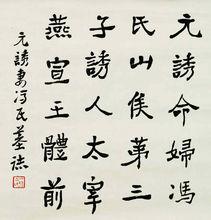 元誘命婦馮
氏山侯第三
子誘人太宰
燕宣王體前
元誘妻馮氏墓誌